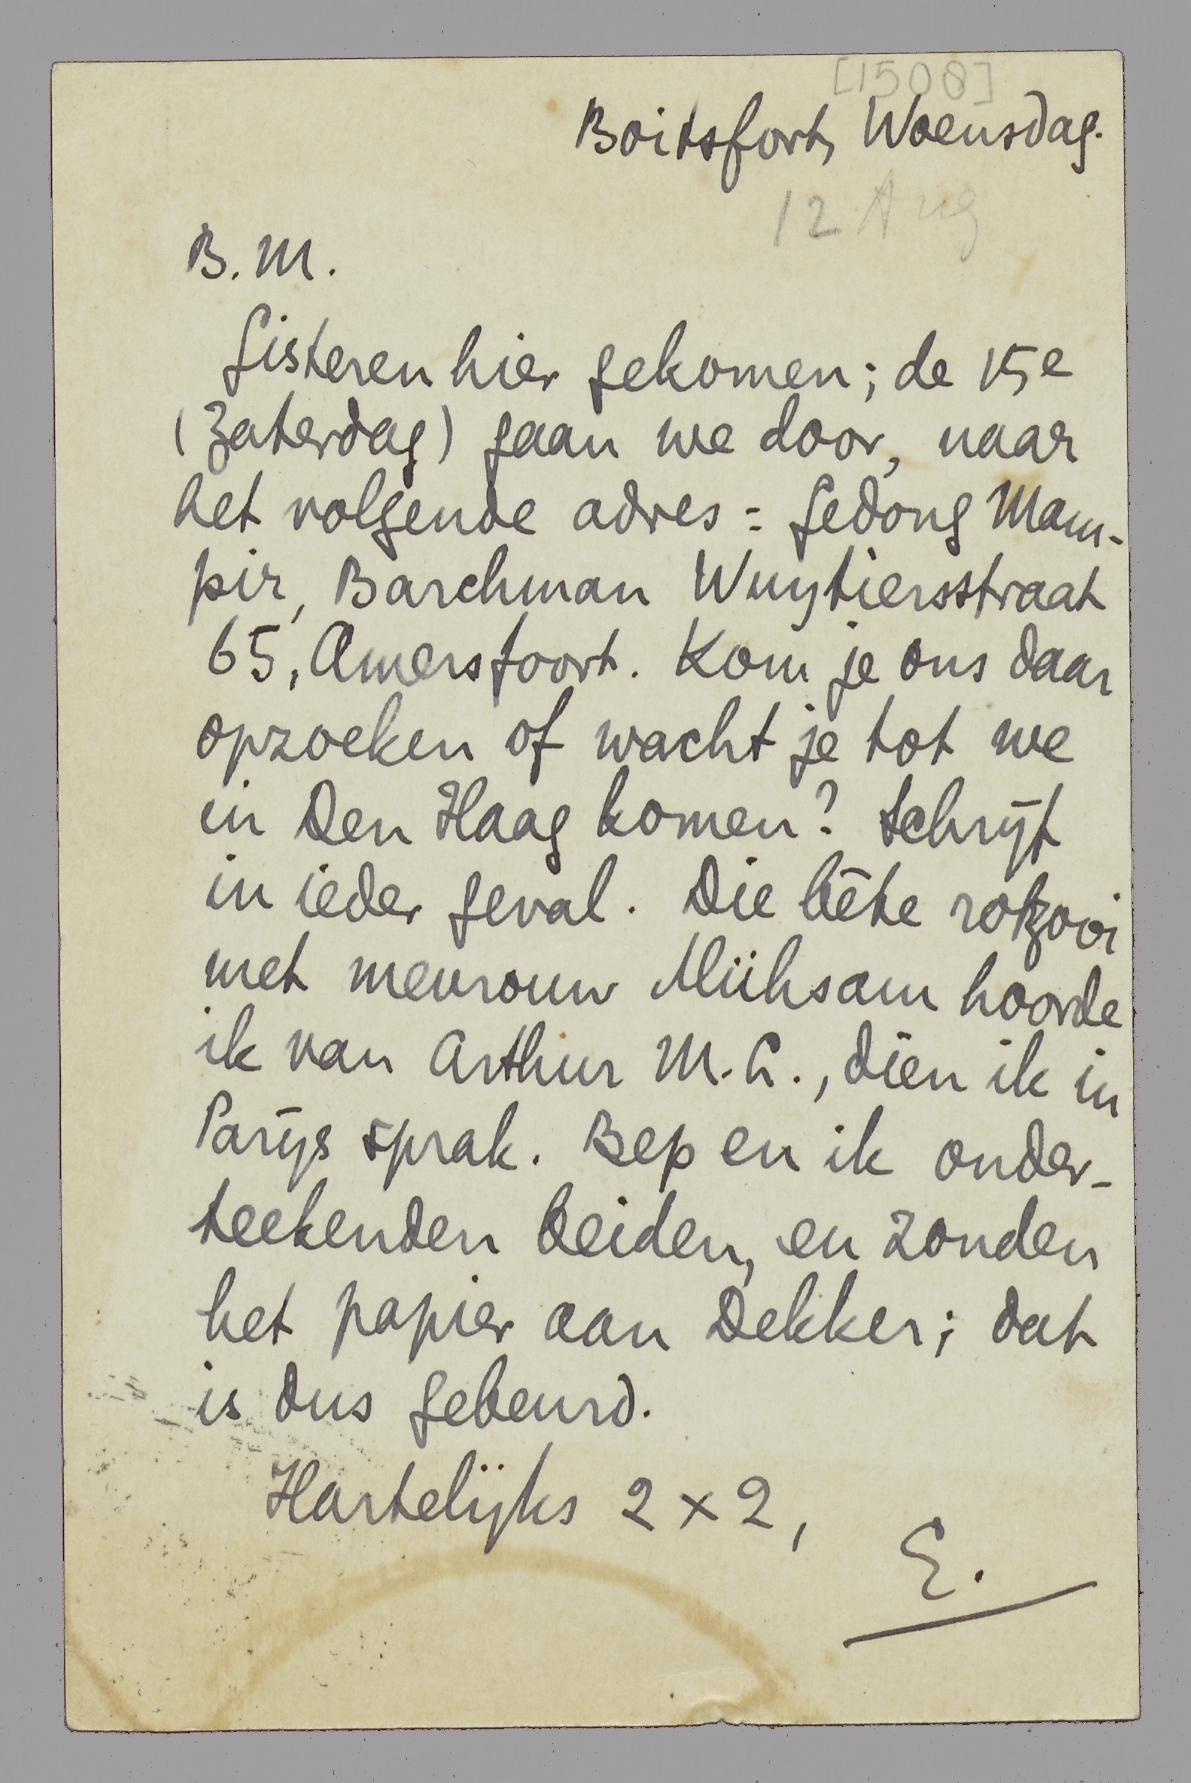 [1508]
Boitsfort, Woensdag.
12 Aug
B.M.
Gisteren hier gekomen; de 15e
(Zaterdag) gaan we door, naar
het volgende adres: Gedong Mam-
pir, Barchman Wuytiersstraat
65, Amersfoort. Kom je ons daar
opzoeken of wacht je tot we
in Den Haag komen? Schrijf
in ieder geval. Die bête rotzooi
met mevrouw Mühsam hoorde
ik van Arthur M.L., dien ik in
Parijs sprak. Bep en ik onder-
teekenden beiden, en zonden
het papier aan Dekker; dat
is dus gebeurd.
Hartelijks 2 x 2,
E.